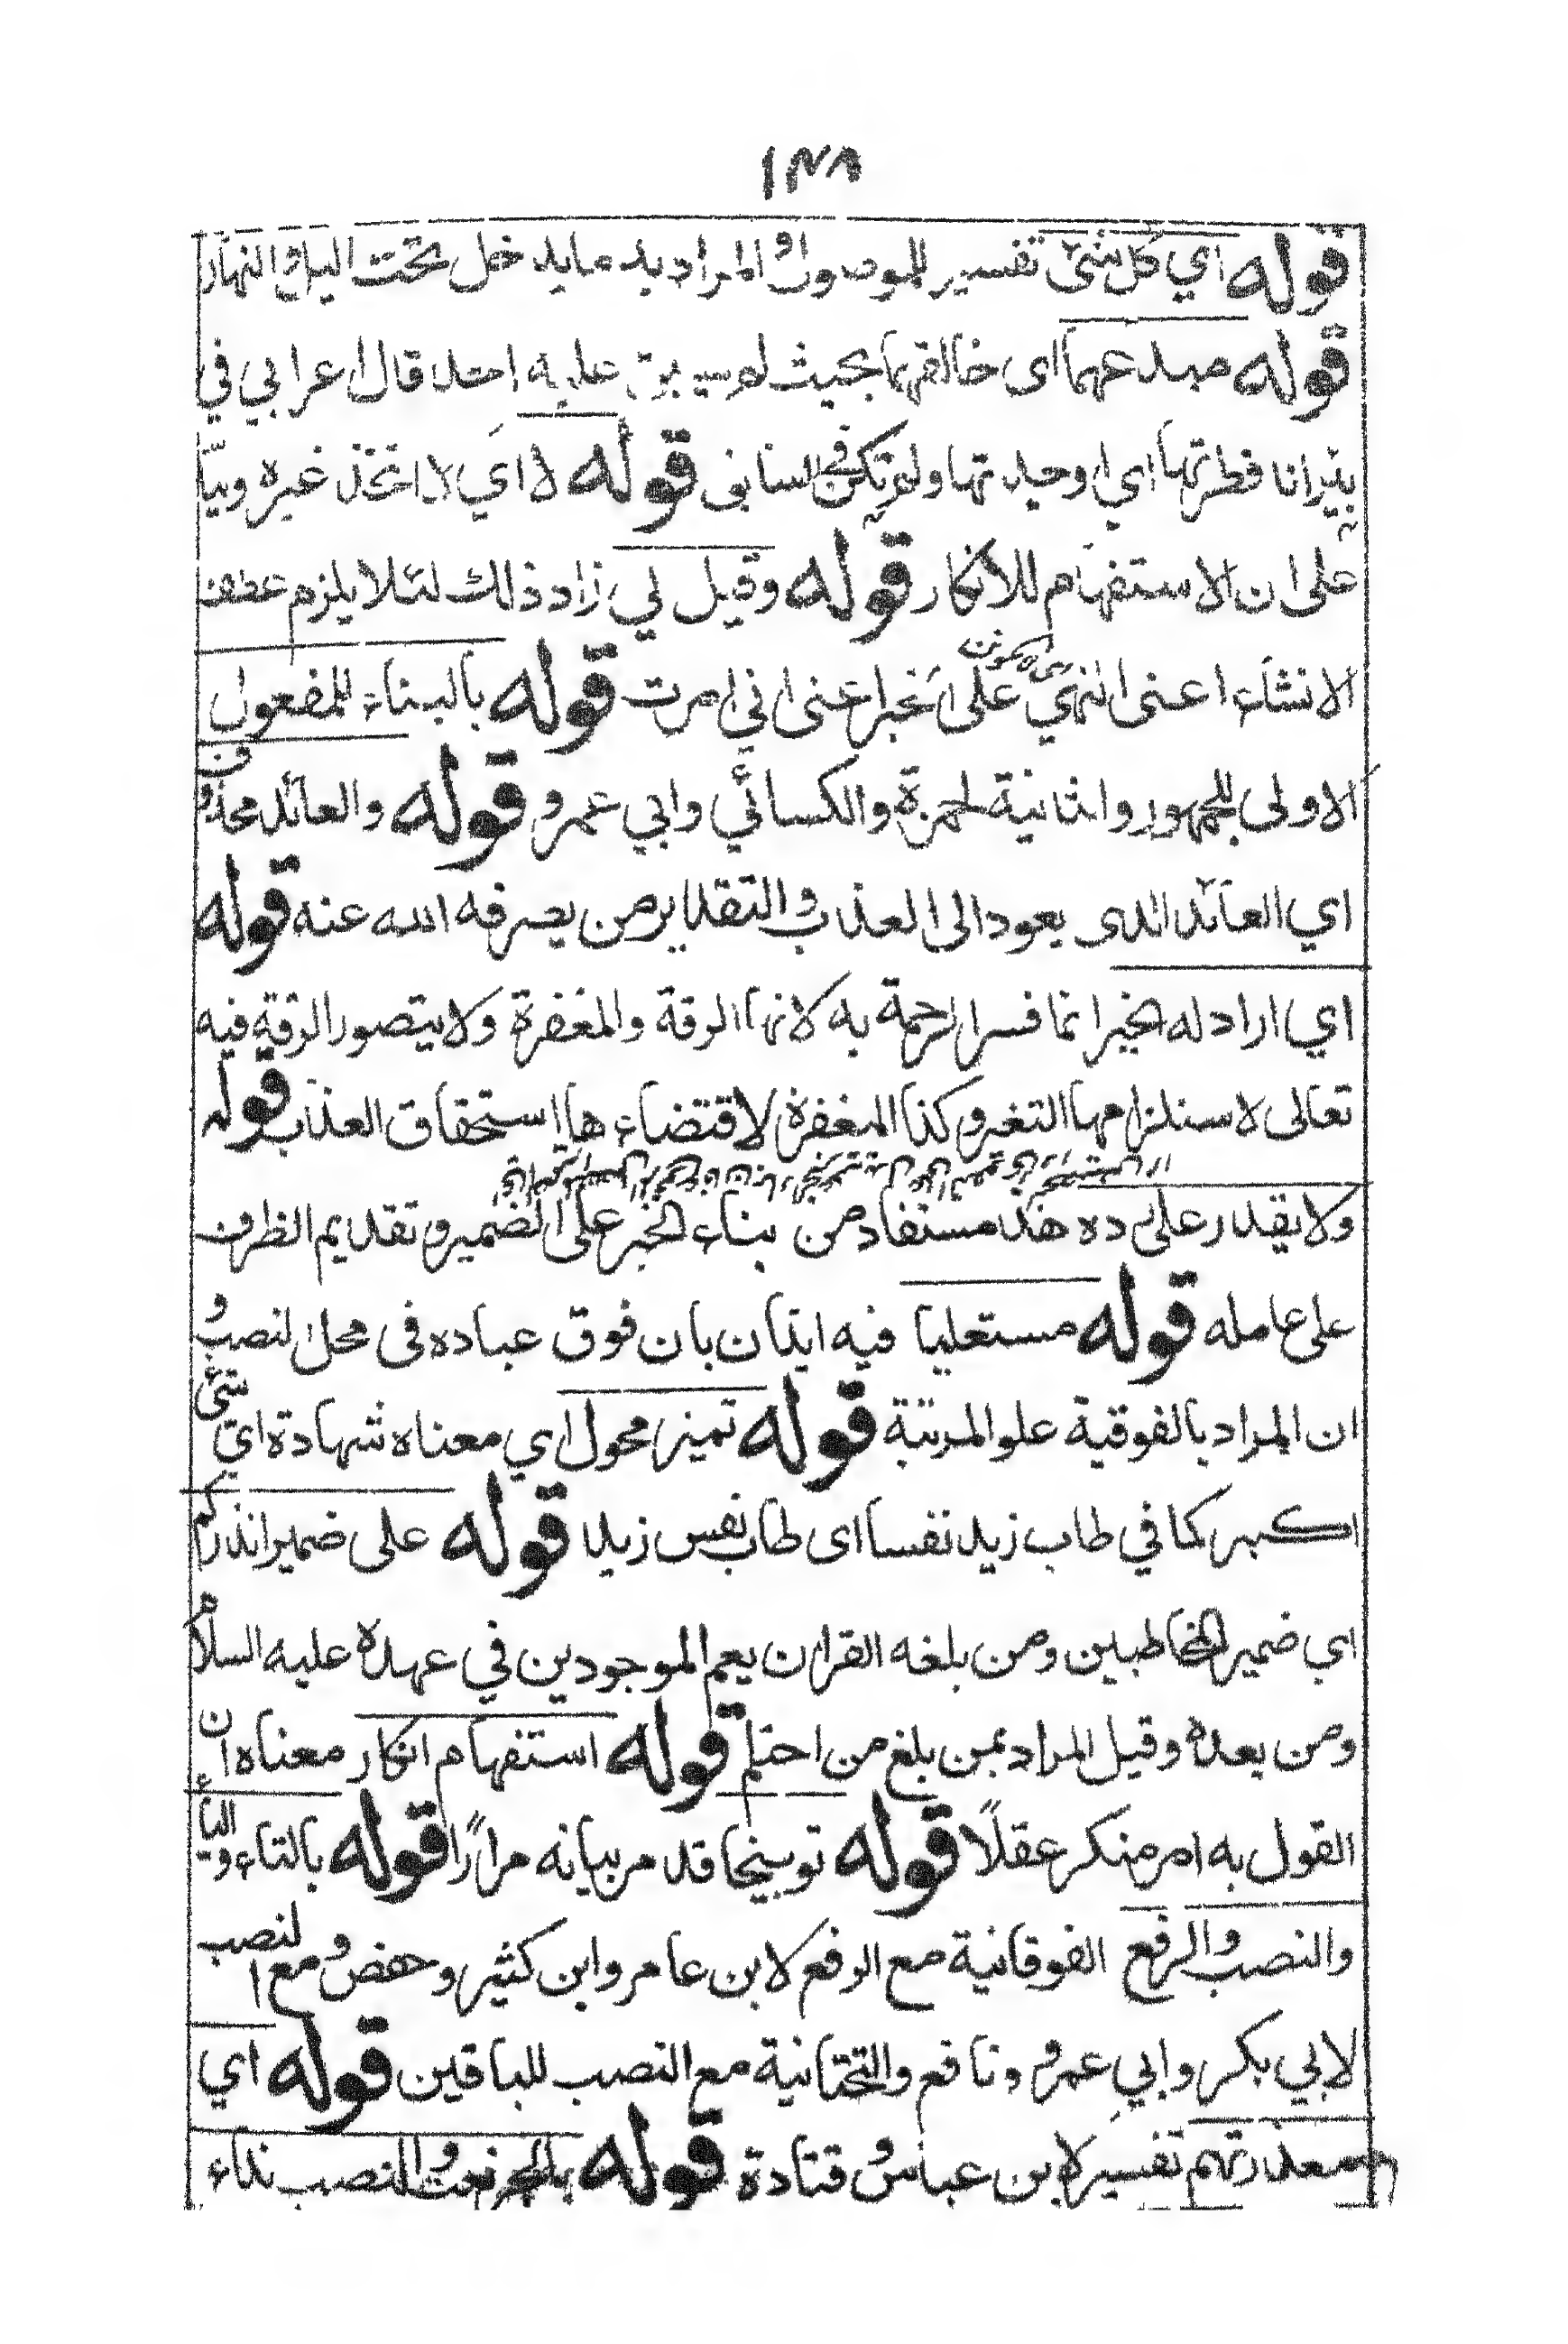 ١٣٨
قوله اي كل شئ تفسير للموصول والمراد به ما يدخل تحت الليل والنهار
قوله مبدعهما اى خالقهما بحيث لم يسبق عليه احد قال اعرابي في
بيرانا فطرتها اي اوحيدتها ولم تكن في السابق قوله لا اي لا اتخذ غيره وبيا
على ان الاستفهام للانكار قوله وقيل لي زاد ذلك لئلا يلزم عطف
الانشاء اعنى النهي على اخبر اعنى اني امرت قوله بالبناء للمفعول
الاولى للجمهور والثانية لحمزة والكسائي وابي عمرو قوله والعائد محذوف
اي العائد الذى يعود الى العذاب والتقدير من يصرفه الله عنه قوله
اي اراد له الخير انما فسر الرحمة به لانها الرقة والمغفرة ولا يتصور الرقة فيه
تعالى لاستلزامها التغير وكذا المغفرة لاقتضاء ها استحقاق العذاب قوله
ولا يقدر على رده هذا مستفاد من بناء الخبر على الضمير وتقديم الظرف
على عامله قوله مستعليا فيه ايذان بان فوق عباده فى محل لنصب و
ان المراد بالفوقية علو المرتبة قوله تميز محول اي معناه شهادة اي شئ
اكبر كما في طاب زيد نفسا اى طاب نفس زيد قوله على ضمير انذركم
اي ضمير المخاطبين ومن بلغه القران يعم الموجودين في عهده عليه السلام
ومن بعده وقيل المراد بمن بلغ من احتلم قوله استفهام انكار معناه ان
القول به امر منكر عقلًا قوله توبيخا قد مر بيانه مرارًا قوله بالتاء والياء
والنصب والرفع الفوقانية مع الرفع لابن عامر وابن كثير وحفص ومع النصب
لابي بكر وابي عمرو ونافع والتحتانية مع النصب للباقين قوله اي
معذرتهم تفسير لابن عباس وقتادة قوله بالجر نعت والنصب نداء